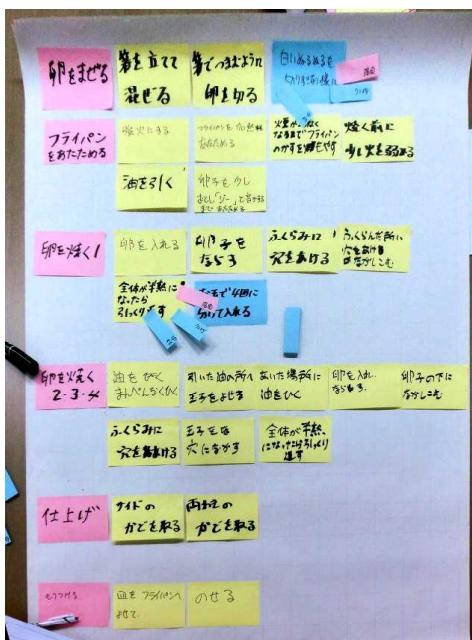 卵をまぜる
箸を立てて
混ぜる
箸でつまむように
卵を切る
白いぬるぬるを
フライパン
をあたためる
強火にする
あたためる
なるまでフライパン
のカスを燃やす
焼く前に
少し火を弱める
油を引く
卵子を少し
卵を焼く1
卵を入れる
卵子を
ならす
ふくらみに
穴をあける
ふくらんだ所に
穴をあけ
ながしこむ
全体が半熟に
なったら
ひっくり返す
分けて入れる
卵を焼く
2・3・4
油をひく
まんべんなくひく
引いた油の所へ
玉子をよせる
あいた場所に
油をひく
卵を入れ
ならす
卵子の下に
ながしこむ
ふくらみに
穴をあける
玉子を
穴にながす
全体が半熟
になったらひっくり
返す
仕上げ
サイドの
かどを取る
両わきの
かどを取る
もりつける
皿をフライパンへ
よせて
のせる